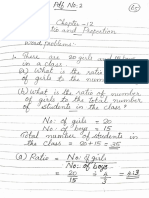 Pdf. No. 2
Chapter -12
Ratio and Proportion
word problems
1. There are 20 girls and 15 boys
in a class.
(a) What is the ratio of number
of girls to the number of boys?
(b) What is the ratio of number
of girls to the total number
of students in the class?
No: of girls = 20
No: of boys = 15
Total number of students in
the class = 20+15 = 35
(a) Ratio = No: of girls
No: of boys
= 20/15 = 4/3 =